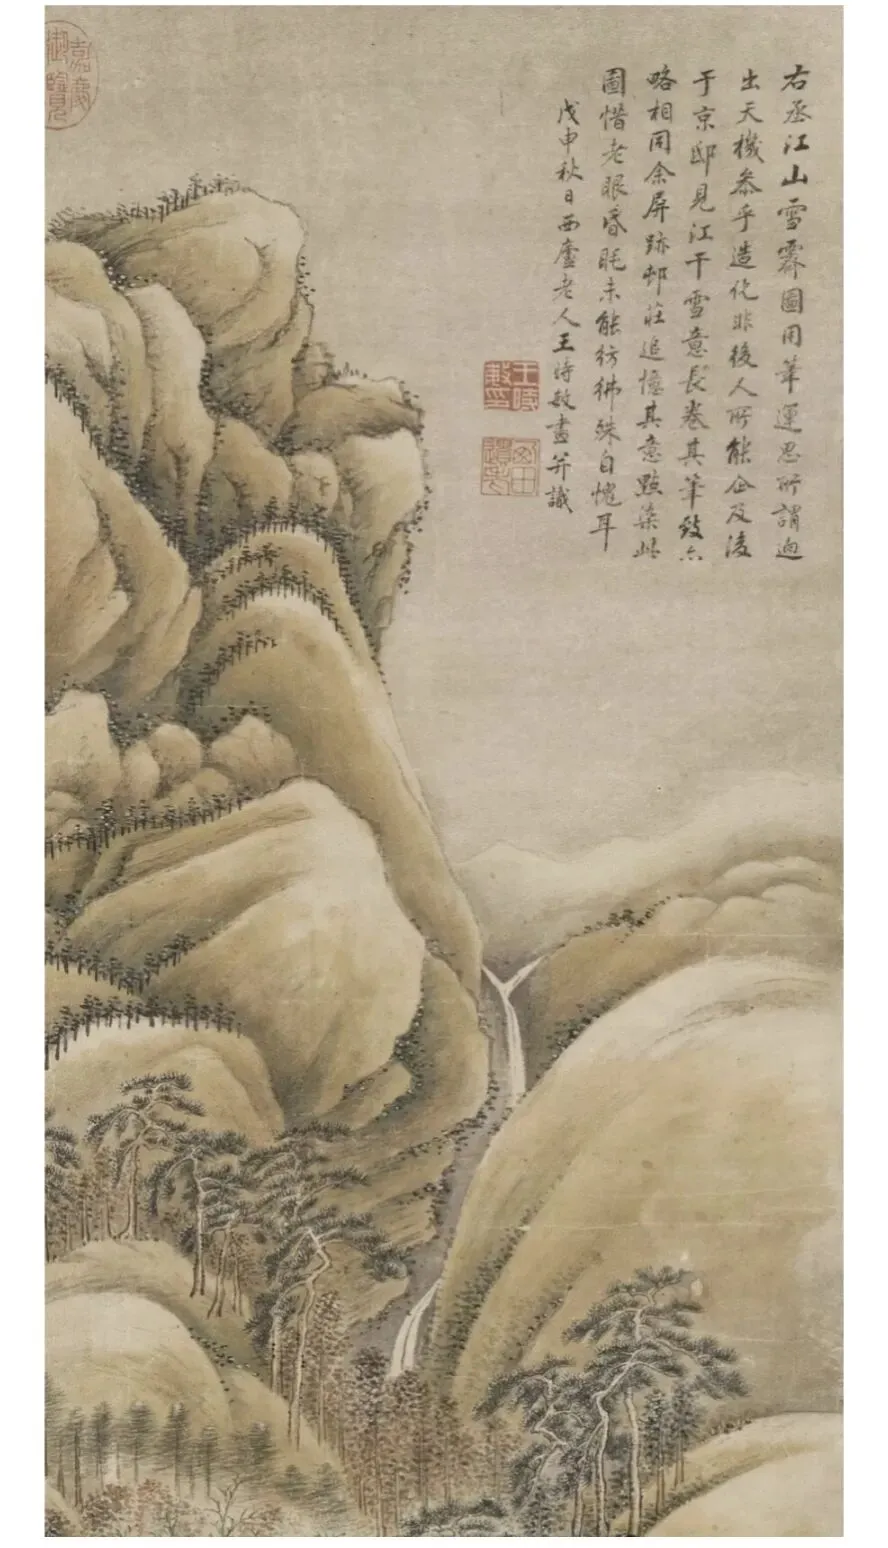 右丞江山雪霽圖用筆運思所謂迥
出天機參乎造化非後人所能企及湊
于京邸見江干雪意長卷其筆致亦
略相同余屏跡邨莊追憶其意點染此
圖惜老眼昏眊未能彷彿殊自愧耳
戊申秋日西廬老人王時敏畫并識
王時敏印
西田遺老
嘉慶御覽